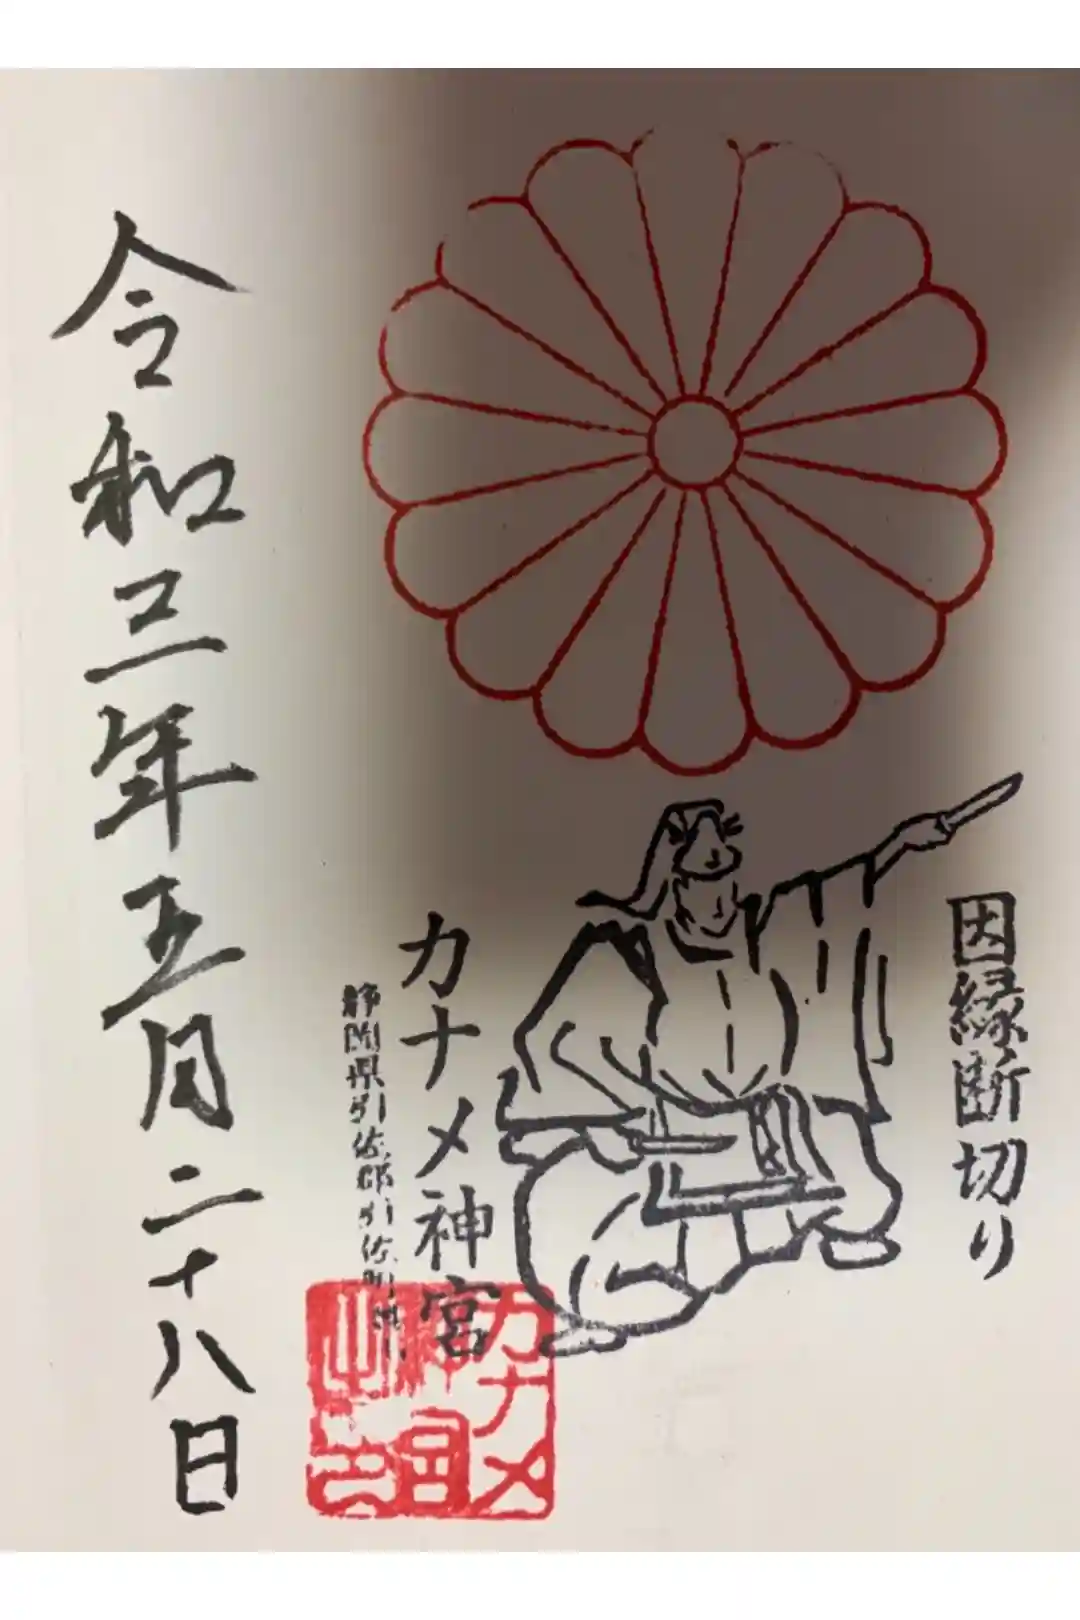 因縁断切り
カナメ神宮
静岡県引佐郡引佐町
カナメ
神宮
之印
令和三年五月二十八日